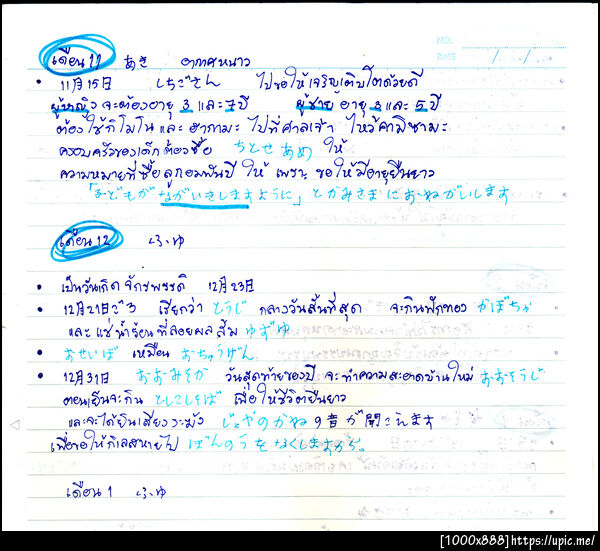 เดือน 11 あき อากาศหนาว
• 11月15日 しちごさん ไปขอให้เจริญเติบโตด้วยดี
ผู้หญิง จะต้องอายุ 3 และ 7 ปี ผู้ชาย อายุ 3 และ 5 ปี
ต้องใช้กิโมโน และ ฮากามะ ไปที่ศาลเจ้า ไหว้คามิซามะ
ครอบครัวของเด็กต้องซื้อ ちとせあめ ให้
ความหมายที่ซื้อลูกอมพันปีให้ เพราะ ขอให้มีอายุยืนยาว
「こどもがながいきしますように」とかみさまにおねがいします
เดือน 12 ふゆ
• เป็นวันเกิดจักรพรรดิ 12月23日
• 12月21日ごろ เรียกว่า とうじ กลางวันสั้นที่สุด จะกินฟักทอง かぼちゃ
และ แช่น้ำร้อนที่ลอยผลส้ม ゆずゆ
• おせいぼ เหมือน おちゅうげん
• 12月31日 おおみそか วันสุดท้ายของปี จะทำความสะอาดบ้านใหม่ おおそうじ
ตอนเย็นจะกิน としこしそば เพื่อให้ชีวิตยืนยาว
และจะได้ยินเสียงระฆัง じょやのかねの音が聞こえます
เพื่อขอให้กิเลสหายไป ぼんのうをなくしますから。
เดือน 1 ふゆ
[1000x888]https://upic.me/